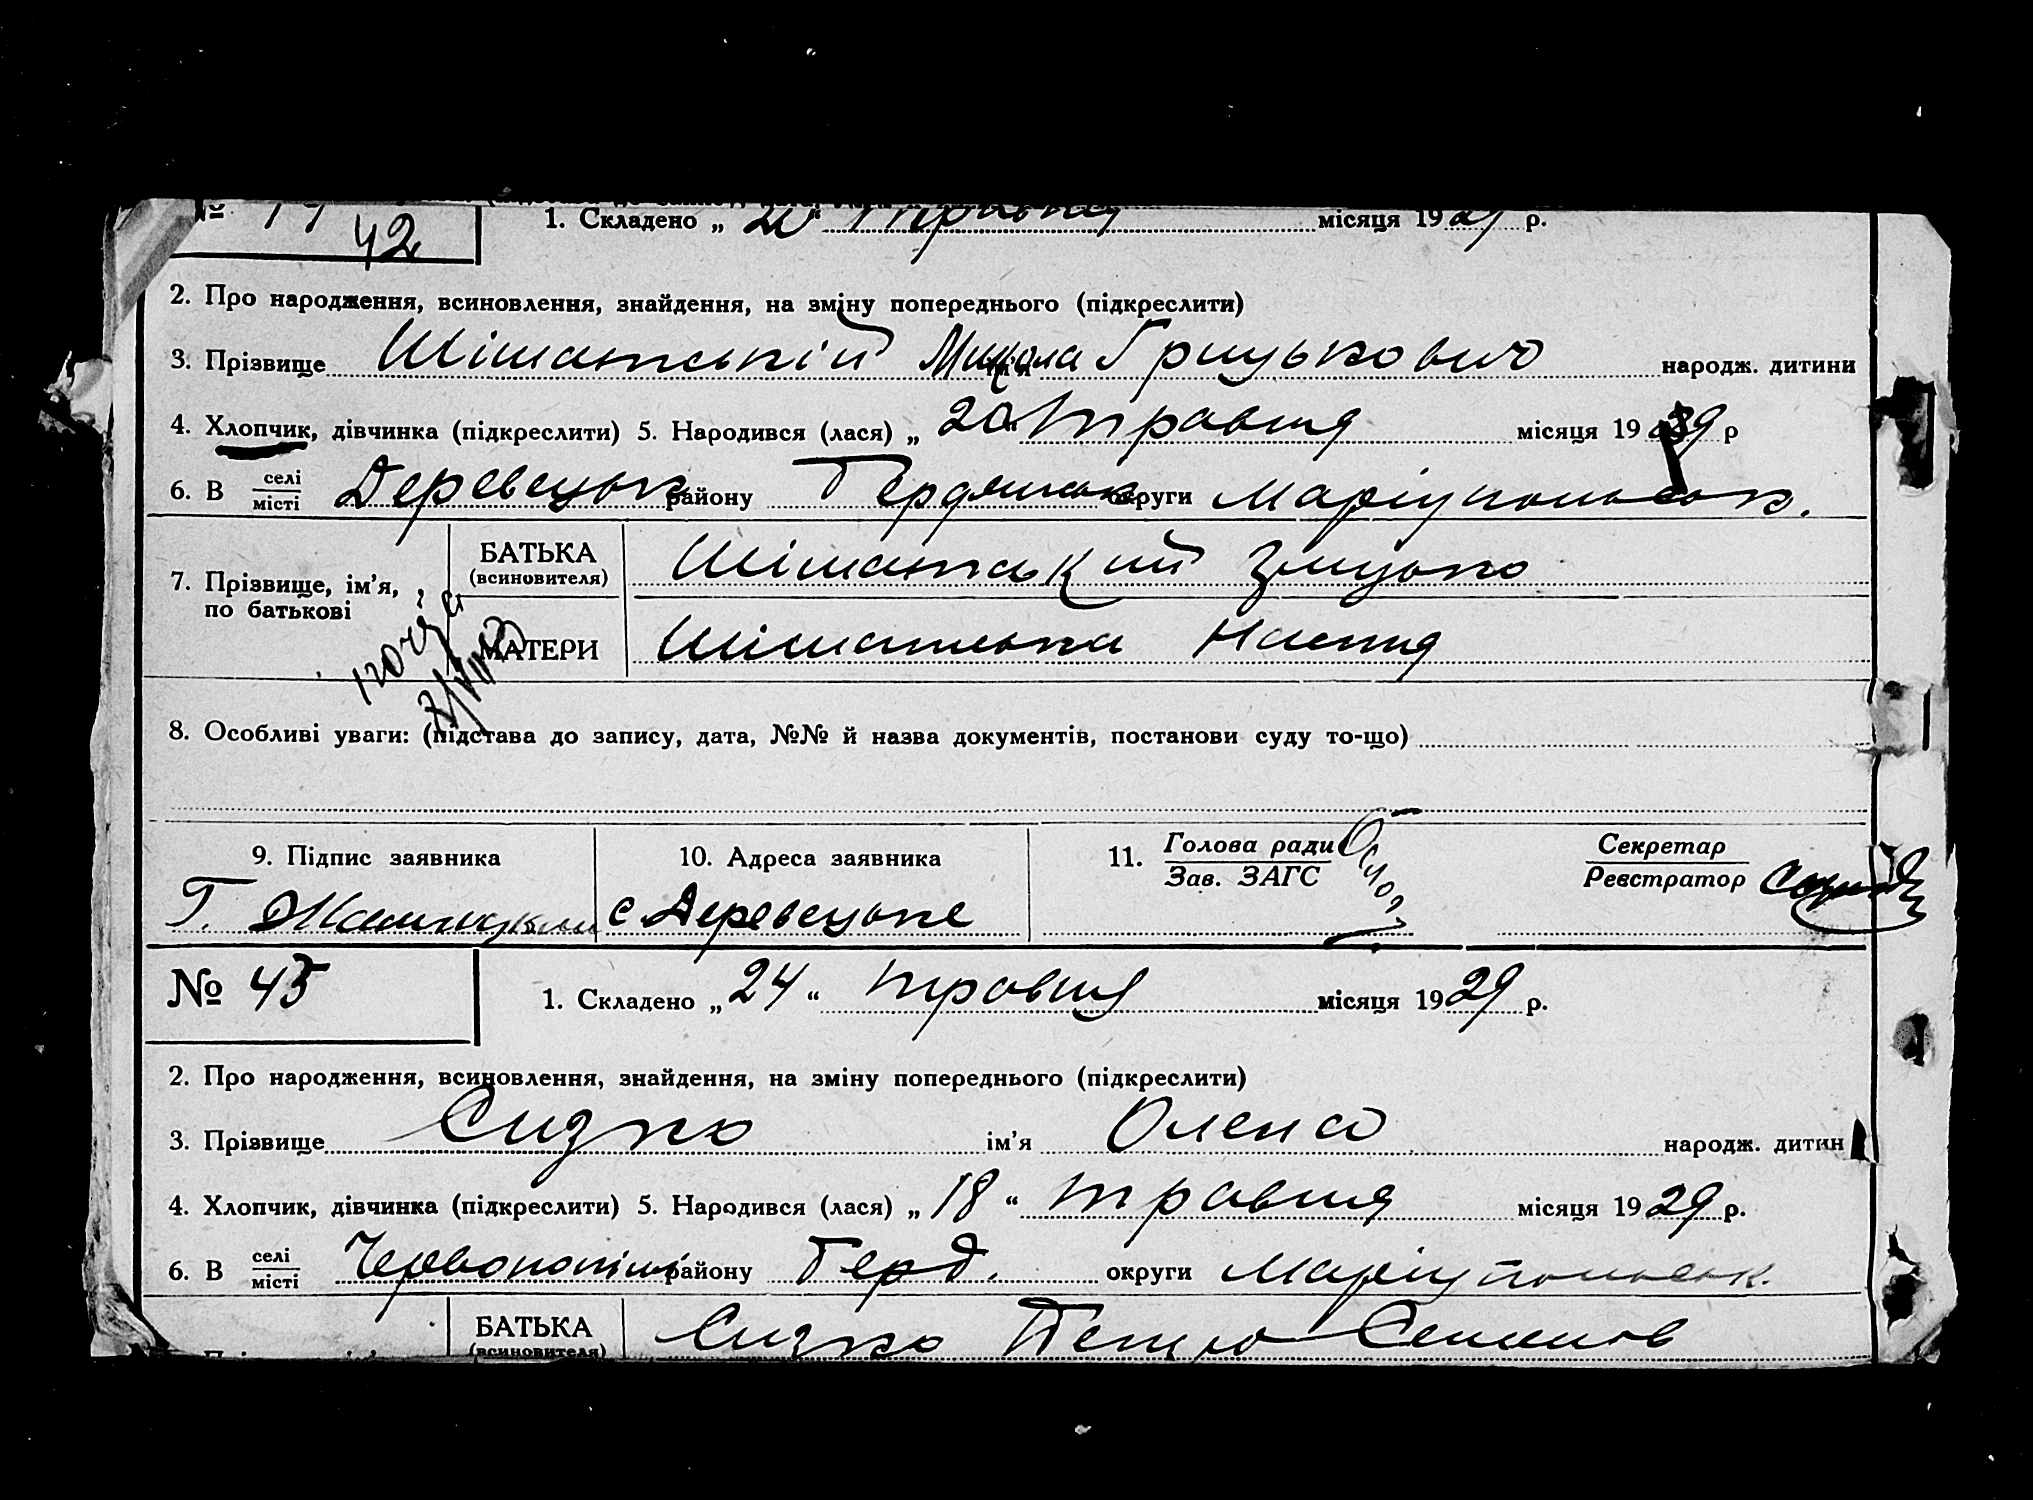 №
42
1. Складено „ 20 “ травня місяця 1929 р.
2. Про народження, всиновлення, знайдення, на зміну попереднього (підкреслити)
3. Прізвище Шіманській Микола Грицькович народж. дитини
4. Хлопчик, дівчинка (підкреслити) 5. Народився (лася) „ 20 “ травня місяця 1929 р
6. В селі/місті Деревецьк району Бердянськ округи Маріупольськ.
7. Прізвище, ім’я, по батькові
БАТЬКА (всиновителя) Шіманський Грицько
МАТЕРИ Шіманська Настя
8. Особливі уваги: (підстава до запису, дата, №№ й назва документів, постанови суду то-що)
9. Підпис заявника 10. Адреса заявника 11. Голова ради/Зав. ЗАГС Секретар/Реєстратор
с Деревецьке
№ 45
1. Складено „ 24 “ травня місяця 1929 р.
2. Про народження, всиновлення, знайдення, на зміну попереднього (підкреслити)
3. Прізвище Сизко ім’я Олена народж. дитин
4. Хлопчик, дівчинка (підкреслити) 5. Народився (лася) „ 18 “ травня місяця 1929 р.
6. В селі/місті району Берд. округи Маріупольськ.
БАТЬКА (всиновителя) Сизко Петро Семенов